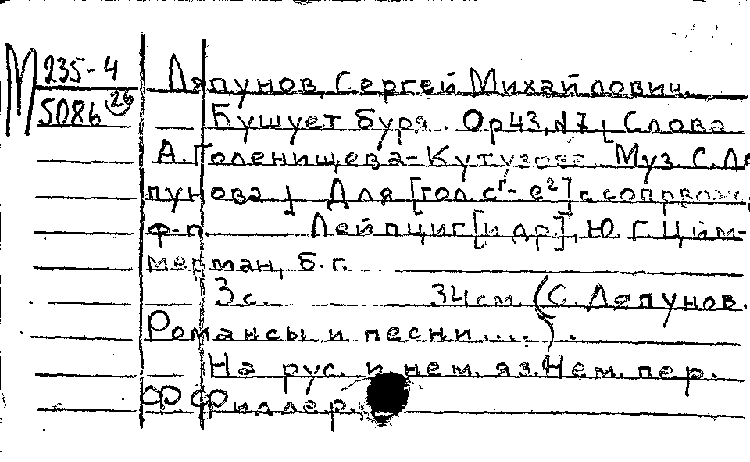 М 235-4 Ляпунов, Сергей Михайлович.
508б 26 Бушует буря. Op 43, №7 [Слова
А. Голенищева-Кутузова. Муз. С. Ля
пунова]. Для [гол. c¹-e²] с сопровож.
ф-п. Лейпциг [и др.], Ю. Г. Цим-
мерман, б. г.
3 с. 34 см. (С. Ляпунов.
Романсы и песни....).
На рус. и нем. яз. Нем. пер.
Ф. Фидлер.